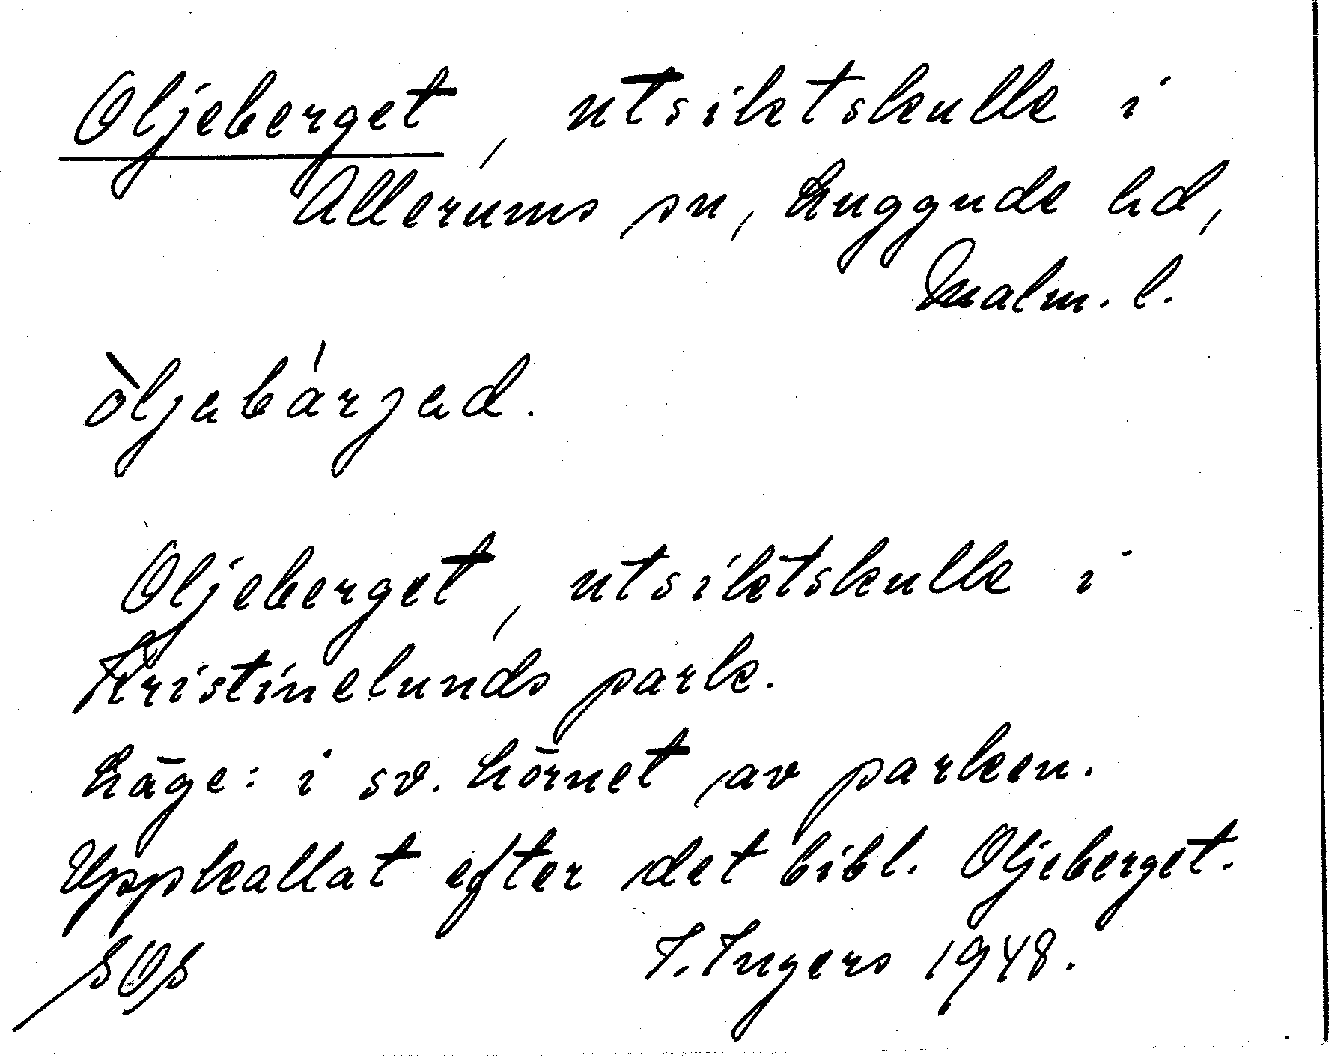 Oljeberget, utsiktskulle i
Allerums sn, Luggude hd,
Malm. l.
òljabárjad.
Oljeberget, utsiktskulle i
Kristinelunds park.
Läge: i sv. hörnet av parken.
Uppkallat efter det bibl. Oljeberget.
I. Ingers 1948.